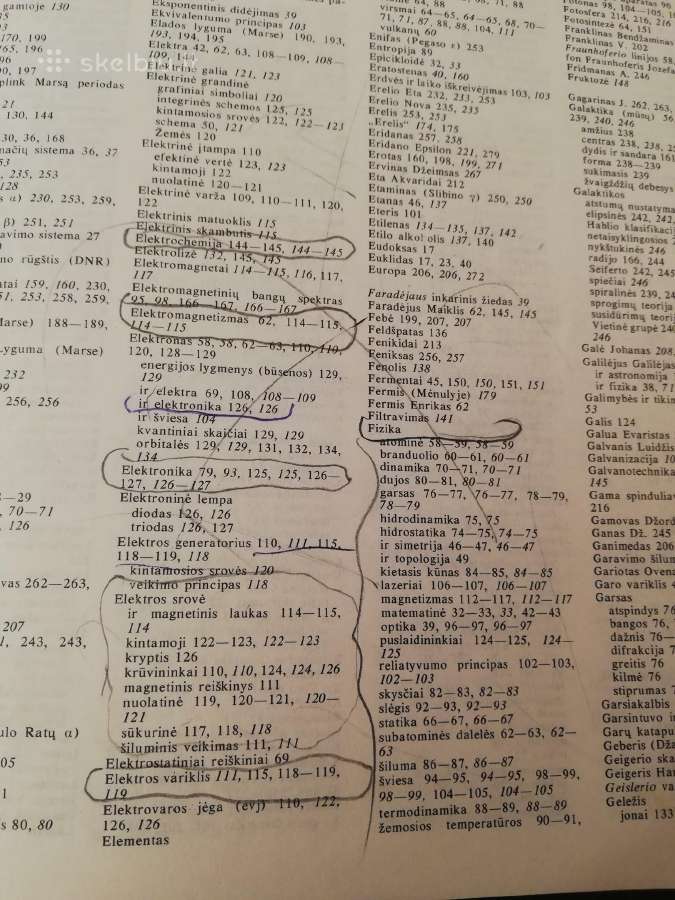 gamtoje 130
170, 199
165, 196
90, 197
plink Marsą periodas
21
130, 144
30, 36, 168
mačių sistema 36, 37
235, 253
128
s α) 230, 253, 259,
β) 251, 251
avimo sistema 27
no rūgštis (DNR)
tai 159, 160, 230,
51, 253, 258, 259,
Marse) 188—189,
Lyguma (Marse)
232
256, 256
8—29
, 70—71
, 126
vas 262—263,
207
1, 243, 243,
ulo Ratų α)
05
1
s 80, 80
skelbiu.lt
Eksponentinis didėjimas 39
Ekvivalentumo principas 103
Elados lyguma (Marse) 190, 193,
193, 194, 195
Elektra 42, 62, 63, 108—109, 108—
109, 141
Elektrinė galia 121, 123
Elektrinė grandinė
grafiniai simboliai 120
integrinės schemos 125, 125
kintamosios srovės 122, 122—123
schema 50, 121
Žemės 120
Elektrinė įtampa 110
efektinė vertė 123, 123
kintamoji 122
nuolatinė 120—121
Elektrinė varža 109, 110—111, 120,
122
Elektrinis matuoklis 115
Elektrinis skambutis 115
Elektrochemija 144—145, 144—145
Elektrolizė 132, 145, 145
Elektromagnetai 114—115, 116, 117,
117
Elektromagnetinių bangų spektras
95, 98, 166—167, 166—167
Elektromagnetizmas 62, 114—115,
114—115
Elektronas 58, 58, 62—63, 110, 110,
120, 128—129
energijos lygmenys (būsenos) 129,
129
ir elektra 69, 108, 108—109
ir elektronika 126, 126
ir šviesa 104
kvantiniai skaičiai 129, 129
orbitalės 129, 129, 131, 132, 134,
134
Elektronika 79, 93, 125, 125, 126—
127, 126—127
Elektroninė lempa
diodas 126, 126
triodas 126, 127
Elektros generatorius 110, 111, 115,
118—119, 118
kintamosios srovės 120
veikimo principas 118
Elektros srovė
ir magnetinis laukas 114—115,
114
kintamoji 122—123, 122—123
kryptis 126
krūvininkai 110, 110, 124, 124, 126
magnetinis reiškinys 111
nuolatinė 119, 120—121, 120—
121
sūkurinė 117, 118, 118
šiluminis veikimas 111, 111
Elektrostatiniai reiškiniai 69
Elektros variklis 111, 115, 118—119,
119
Elektrovaros jėga (evj) 110, 122,
126, 126
Elementas
virsmai 64—65, 64—65, 68, 70—
71, 71, 87, 88, 88, 104, 111
vulkanų 60
Enifas (Pegaso ε) 253
Entropija 89
Epicikloidė 32, 33
Eratostenas 40, 160
Erdvės ir laiko iškreivėjimas 103, 103
Erelio Eta 232, 233, 253
Erelio Nova 235, 235
Erelis 253, 253
„Erelis“ 174, 175
Eridanas 257, 258
Eridano Epsilon 221, 279
Erotas 160, 198, 199, 271
Ervinas Džeimsas 267
Eta Akvaridai 212
Etaminas (Slibino γ) 250, 250
Etanas 46, 137
Eteris 101
Etilenas 134—135, 137, 142
Etilo alkoholis 137, 140
Eudoksas 17
Euklidas 17, 23, 40
Europa 206, 206, 272
Faradėjaus inkarinis žiedas 39
Faradėjus Maiklis 62, 145, 145
Febė 199, 207, 207
Feldšpatas 136
Fenikidai 213
Feniksas 256, 257
Fenolis 138
Fermentai 45, 150, 150, 151, 151
Fermis (Mėnulyje) 179
Fermis Enrikas 62
Filtravimas 141
Fizika
atominė 58—59, 58—59
branduolio 60—61, 60—61
dinamika 70—71, 70—71
dujos 80—81, 80—81
garsas 76—77, 76—77, 78—79,
78—79
hidrodinamika 75, 75
hidrostatika 74—75, 74—75
ir simetrija 46—47, 46—47
ir topologija 49
kietasis kūnas 84—85, 84—85
lazeriai 106—107, 106—107
magnetizmas 112—117, 112—117
matematinė 32—33, 33, 42—43
optika 39, 96—97, 96—97
puslaidininkiai 124—125, 124—
125
reliatyvumo principas 102—103,
102—103
skysčiai 82—83, 82—83
slėgis 92—93, 92—93
statika 66—67, 66—67
subatominės dalelės 62—63, 62—
63
šiluma 86—87, 86—87
šviesa 94—95, 94—95, 98—99,
98—99, 104—105, 104—105
termodinamika 88—89, 88—89
žemosios temperatūros 90—91,
Fotonas 98, 104—105,
Fotosfera 214, 216, 216
Fotosintezė 64, 151
Franklinas Bendžaminas
Franklinas V. 202
Fraunhoferio linijos 58,
fon Fraunhoferis Jozefa
Fridmanas A. 246
Fruktozė 148
Gagarinas J. 262, 263,
Galaktika (mūsų) 56,
239, 240, 246
amžius 238
centras 238, 238,
dydis ir sandara 161
forma 238—239
sukimasis 239
žvaigždžių debesys
Galaktikos
atstumų nustatyma
elipsinės 242, 242,
Hablio klasifikacij
netaisyklingosios 2
nykštukinės 246
radijo 166, 244
Seiferto 242, 245
spiečiai 246
spiralinės 239, 24
sprogimų teorija
susidūrimų teorij
Vietinė grupė 24
246
Galė Johanas 208,
Galilėjus Galilėjas
ir astronomija
ir fizika 38, 71
Galimybės ir tikim
53
Galis 124
Galua Evaristas
Galvanis Luidžis
Galvanizacija 10
Galvanotechnika
145
Gama spinduliav
216
Gamovas Džord
Ganas Dž. 245
Ganimedas 206
Garavimo šilum
Gariotas Oven
Garo variklis 4
Garsas
atspindys 76
bangos 76,
dažnis 76—
difrakcija 7
greitis 76
kilmė 76
stiprumas 7
Garsiakalbis
Garsintuvo ir
Garų katapu
Geberis (Dža
Geigerio ska
Geigeris Han
Geislerio va
Geležis
jonai 133